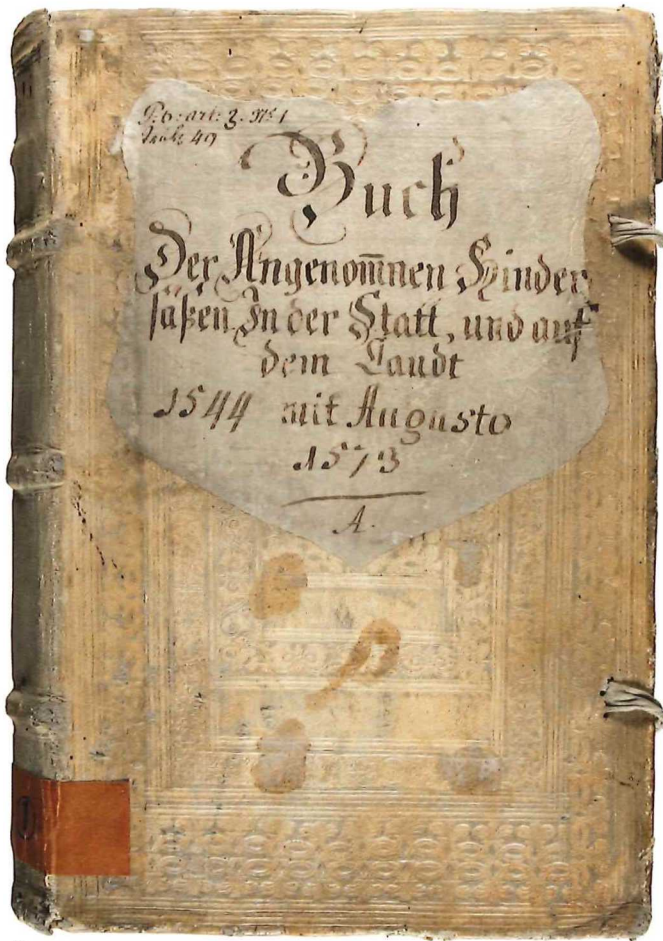 P. 6: art: 3. N° 1
49
Buch
Der Angenom̄nen Hinder
säßen In der Statt, und auf
dem Landt
1544 mit Augusto
1573
A.